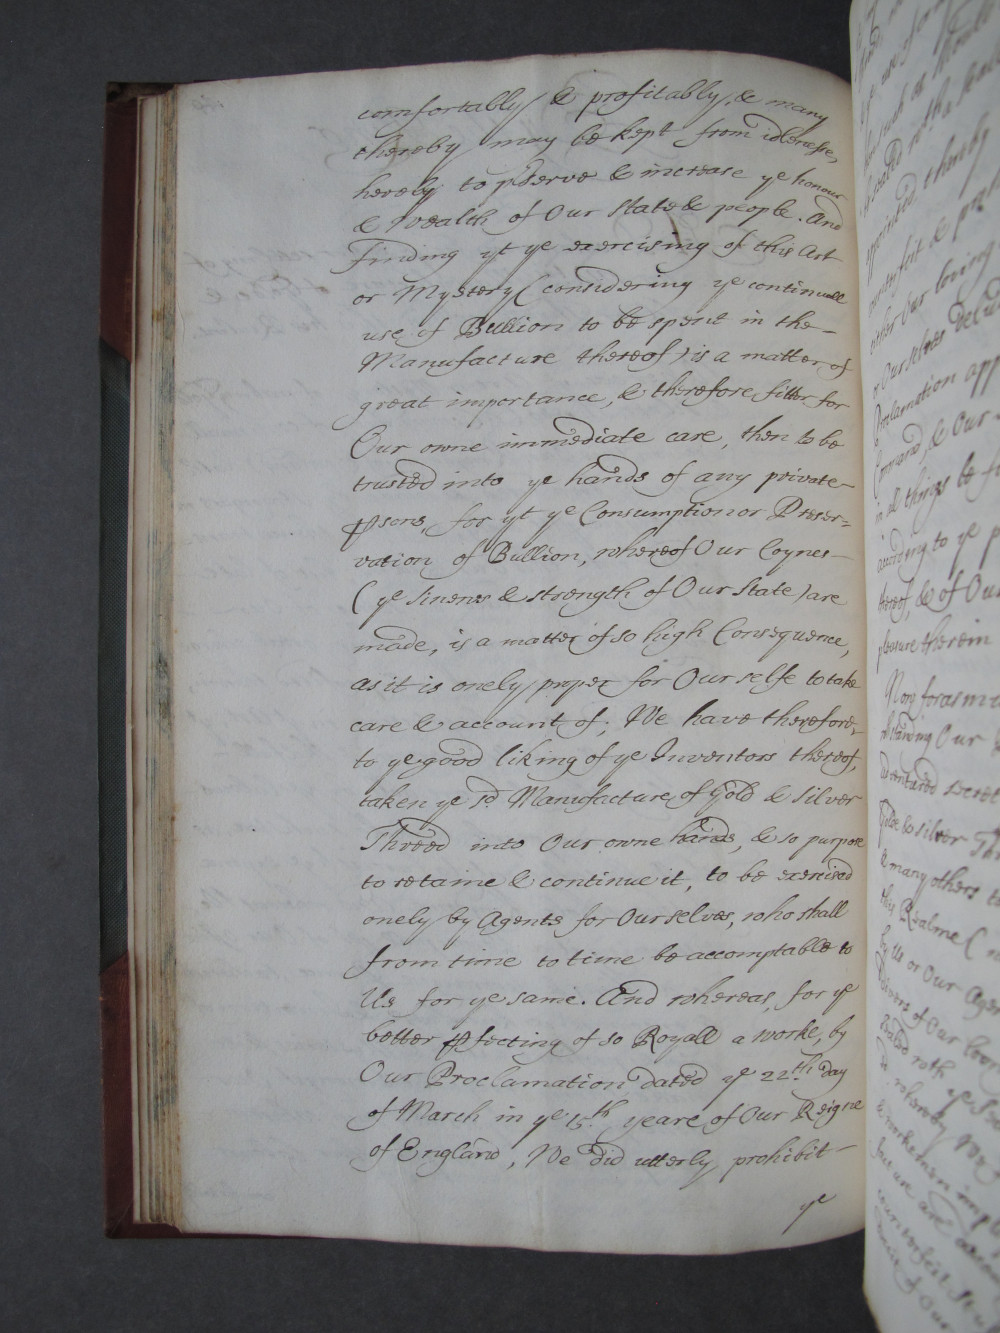 comfortably & profitably, & many
thereby may be kept from idlenesse,
hereby to pserve & increase ye honour
& Wealth of Our State & people. And
Finding yt ye exercising of this Art
or Mystery (considering ye continuall
use of Bullion to be spent in the-
Manufacture thereof) is a matter of
great importance, & therefore fitter for
Our owne immediate care, then to be
trusted into ye hands of any private-
psons, for yt ye Consumption or Preser-
vation of Bullion, whereof Our Coynes-
(ye Sinews & strength of Our State) are
made, is a matter of so high Consequence,
as it is onely proper for Our selfe to take
care & account of; We have therefore,
to ye good liking of ye Inventors thereof,
taken ye sd Manufacture of Gold & Silver
Thred into Our owne hands, & so purpose
to retaine & continue it, to be exercised
onely by Agents for Our selves, who shall
from time to time be accomptable to
Us for ye same. And whereas, for ye
better pfecting of so Royall a worke, by
Our Proclamation dated ye 22th day
of March in ye 15th yeare of Our Reigne
of England, We did utterly prohibit-
ye
either Our loving
or Our selves
Proclamation
Command, & Our
in all things be
according to ye
thereof, & of Our
pleasure therein
Now forasmu
Our
secret
& silver Thr
& many others
this Realme (
by Us or Our Agen
of Our